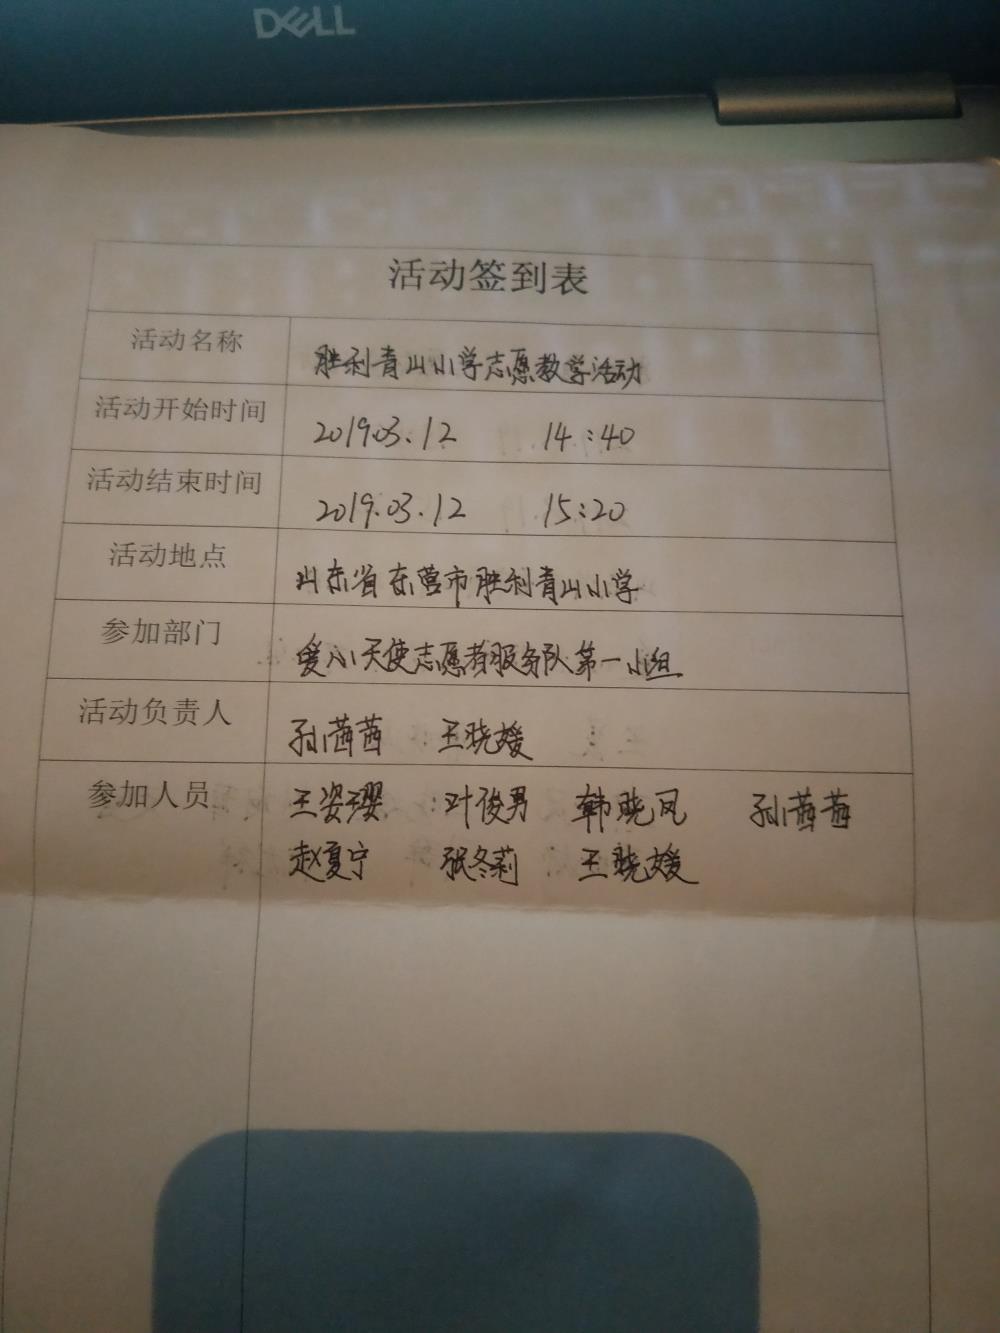 DELL
活动签到表
活动名称 胜利青山小学志愿教学活动
活动开始时间 2019.03.12 14:40
活动结束时间 2019.03.12 15:20
活动地点 山东省东营市胜利青山小学
参加部门 爱心天使志愿者服务队第一小组
活动负责人 孙茜茜 王晓媛
参加人员 王姿璎 叶俊男 韩晓凤 孙茜茜
赵夏宁 张冬莉 王晓媛